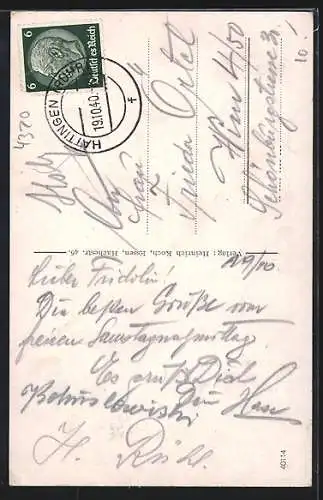 6 Deutsches Reich 6
HATTINGEN (RUHR)
19.10.40
f
4320
Frau
Frieda Ortel
Wien 4/50
Schönburgstrasse 31
10!
Verlag: Heinrich Koch, Essen, Hachestr. 46.
19/10.
Lieber Fridolin!
Die besten Grüße vom
freien Samstagnachmittag.
Es grüßt Dich
Dein Hans
H.
40114